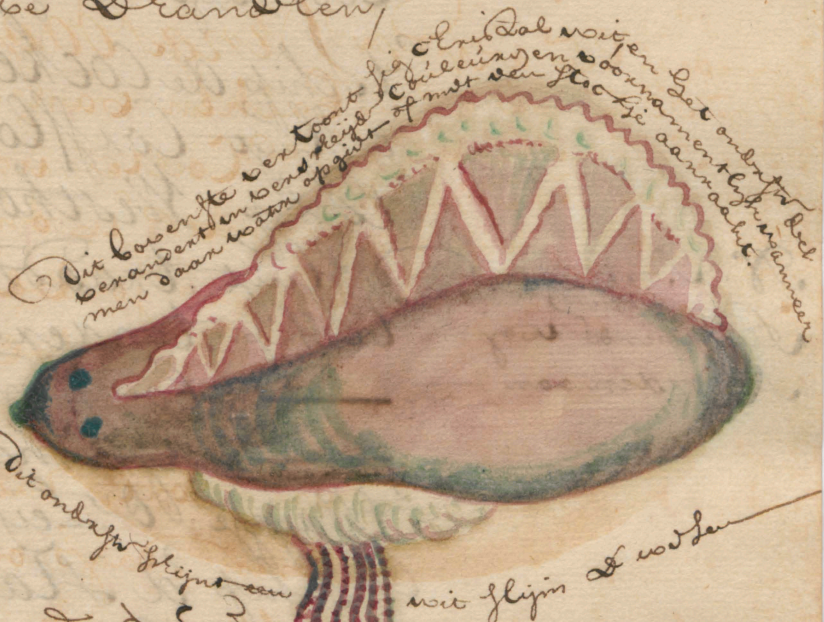 de Brandten,
Dit bovenste vertoont sig Cristal wit, en het onderste deel
verandert in verscheijde Couleuren, en voornamentlijk wanneer
men daar water opgiet of met een stockje aanraakt.
Dit onderste schijnt een
wit slijm te wesen